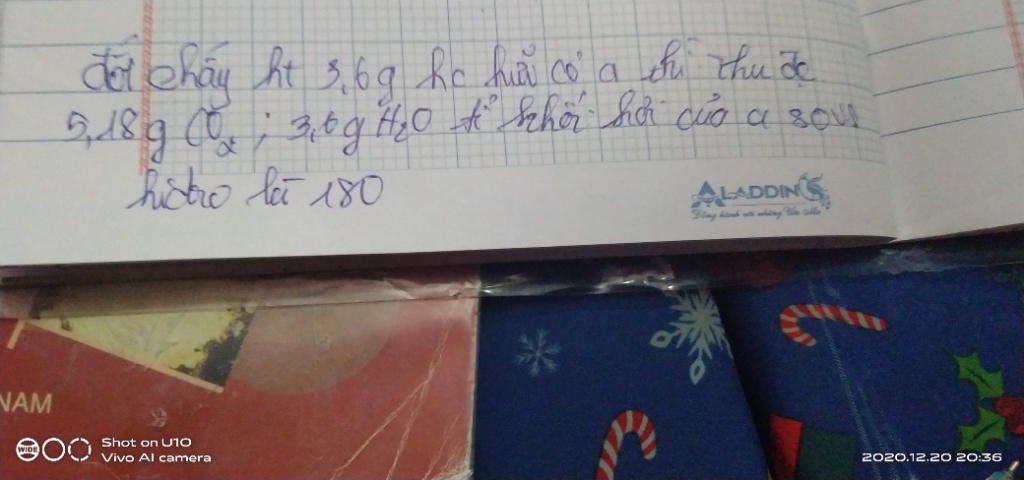 đốt cháy ht 3,6g hc hữu cơ a thì thu đc
5,18g CO2; 3,6g H2O tỉ khối hơi của a so với
hidro là 180
ALADDIN
Đồng hành với những Ước Mơ
NAM
WIDE Shot on U10
Vivo AI camera
2020.12.20 20:36